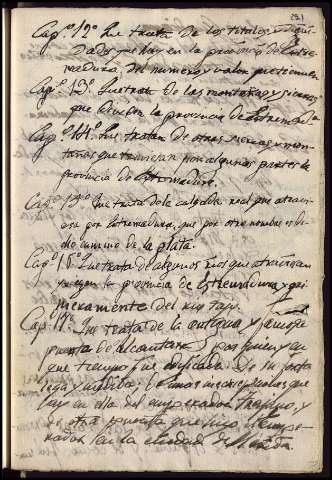 Cap.º 12º Que trata de los titulos y digni
dades que hay en la provincia de Estre
madura, del numero y valor
Cap.º 13º. Que trata de las montañas y sierras
que dividen la provincia de Estremadura
Cap.º 14º. Que tratan de otras sierras y mon
tañas que atraviesan por algunas partes la
provincia de Estremadura.
Cap.º 15º. Que trata de la calzada real que atravi
esa por Estremadura, que por otro nombre es di
cho camino de la plata.
Cap.º 16º. Que trata de algunos rios que atraviesan
y riegan la provincia de Estremadura y pri
meramente del rio Tajo.
Cap.º 17º. Que trata de la antigua y famosa
puente de Alcantara, y por quien y en
que tiempo fue edificada. De su forta
leza y medida, y de unas
hay en ella del emperador Trajano, y
de otra puente que hizo el empe
rador en la ciudad de Merida